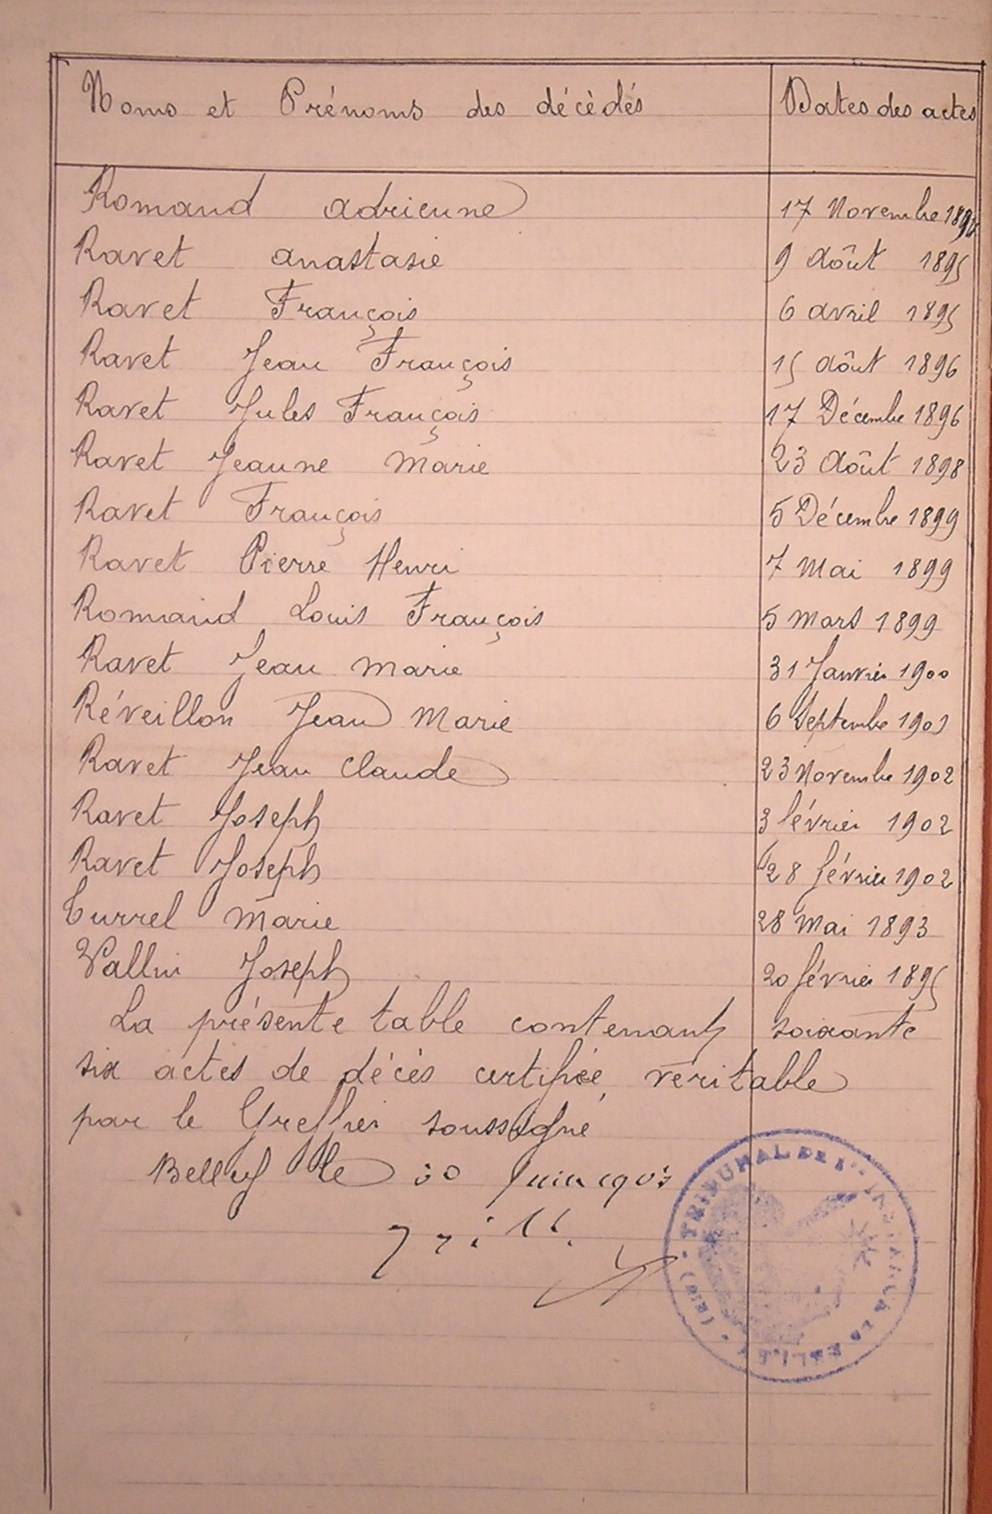 Noms et Prénoms des décèdés Dates des actes
Romand Adrienne 17 Novembre
Ravet Anastasie 9 Aôut 1895
Ravet François 6 avril 1895
Ravet Jean François 15 Aôut 1896
Ravet Jules François 17 Décembre 1896
Ravet Jeanne Marie 23 Aôut 1898
Ravet François 5 Décembre 1899
Ravet Pierre Henri 7 Mai 1899
Romand Louis François 5 Mars 1899
Ravet Jean Marie 31 Janvier 1900
Réveillon Jean Marie 6 Septembre
Ravet Jean Claude 23 Novembre 1902
Ravet Joseph 3 février 1902
Ravet Joseph 28 février 1902
Turrel Marie 28 Mai 1893
Vallin Joseph 20 février 1895
La présente table contenant soixante
six actes de décès certifiée véritable
par le Greffier soussigné
Belley le 30 Juin 1903
TRIBUNAL DE 1re INSTANCE DE BELLEY (AIN)